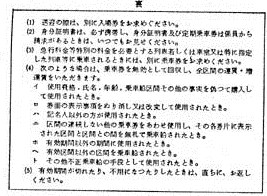 裏
(1) 送迎の際は、別に入場券をお求めください。
(2) 身分証明書は、必ず携帯し、身分証明書及び定期乗車券は係員から
請求があるときは、いつでもお見せください。
(3) 急行料金等特別の料金を必要とする列車若しくは車室又は特に指定
した列車等に乗車されるときには、別に乗車券をお求めください。
(4) 次のような場合は、乗車券を無効として回収し、全区間の運賃・増
運賃をいただきます。
イ 使用資格、氏名、年齢、乗車区間その他の事実を偽つて購入し
て使用されたとき。
ロ 券面の表示事項をぬり消し又は改変して使用されたとき。
ハ 記名人以外の方が使用されたとき。
ニ 区間の連続しない他の乗車券をあわせ使用し、その各券片に表示
された区間と区間との間を無札で乗車されたとき。
ホ 有効期間以外の期間に使用されたとき。
ヘ 有効区間以外の区間を乗車されたとき。
ト その他不正乗車船の手段として使用されたとき。
(5) 有効期間が切れたり、不用になつたりしたときは、直ちに、お返し
ください。